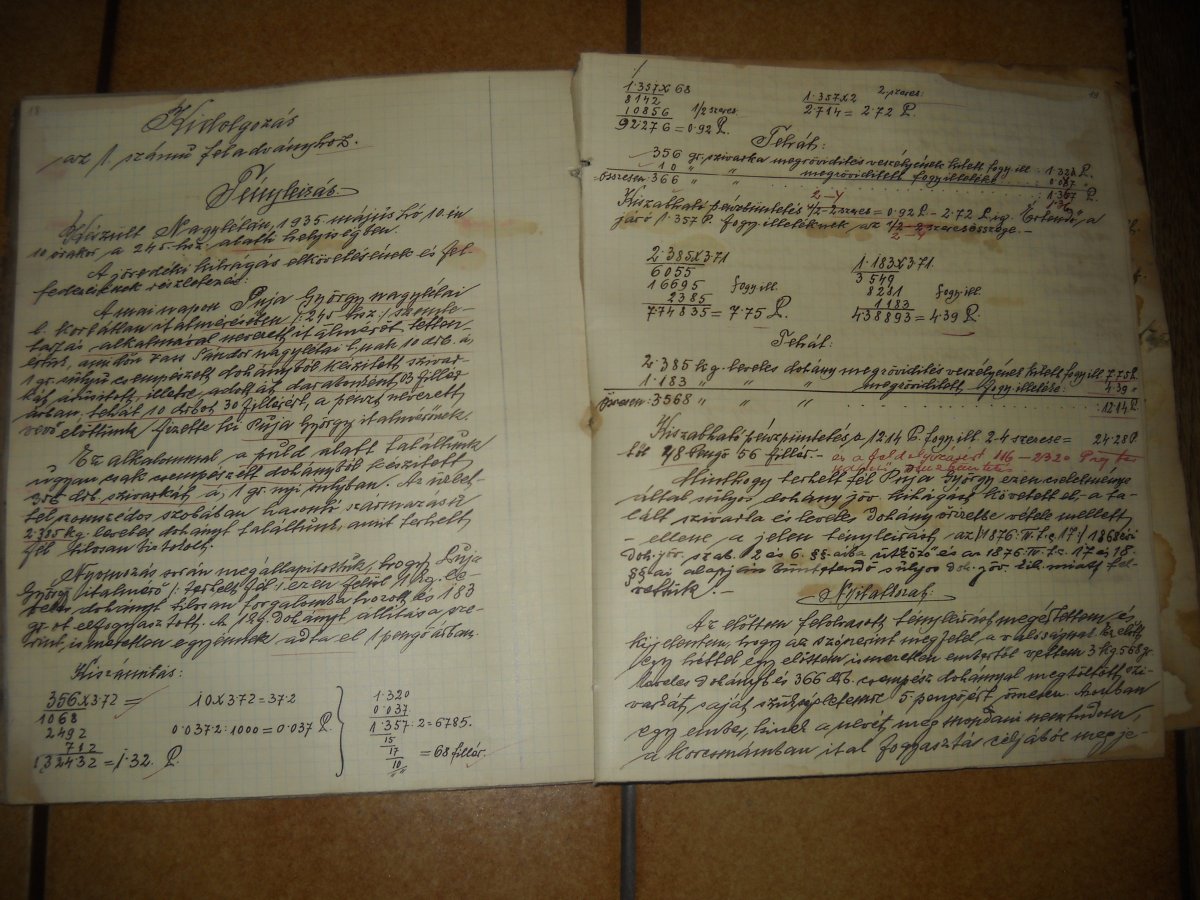 18
Kidolgozás
az 1. számú feladványhoz.
Tényleírás
Készült Nagylétán, 1935. május hó 10.-én
10 órakor a 245. hsz. alatti helyiségben.
A jövedéki kihágás elkövetésének és fel-
fedezésének részletezése:
A mai napon Puja György nagylétai
l. korlátlan italmérésében /:245 hsz:/ szemle-
tartás alkalmával nevezett italmérőt tetten
értük, amidőn Pándor nagylétai l.-nak 10 drb. á.
1 gr. súlyú csempészett dohányból készített szivar-
kát árusított, illetve adott át darabonként 03 fillér
árban, tehát 10 drbot 30 fillérért, a pénzt nevezett
vevő előttünk fizette ki Puja György italmérőnek.
Ez alkalommal a pult alatt találtunk
ugyancsak csempészett dohányból készített
356 drb. szivarkát á, 1 gr.-nyi súlyban. Az
szomszédos szobában hasonló származású
2.385 kg. leveles dohányt találtunk, amit terhelt
fél tilosan birtokolt.
Nyomozás során megállapítottuk, hogy Puja
György italmérő /: terhelt fél :/ ezen felül 1 kg. le-
veles dohányt tilosan forgalomba hozott és 183
gr.-ot elfogyasztott. Az 1 kg. dohányt állítása sze-
rint, ismeretlen egyénnek adta el 1 pengő árban.
Kiszámítás:
356x3.72 =
1068
2492
712
1.32432 = 1.32. P.
10x3.72=37.2
0.037.2:1000=0.037 P.
1.320
0.037
1.357:2=6785.
15
17
10
= 68 fillér.
19
1.357x68
8142
10856 1/2 szeres.
92.276=0.92 P.
2 szeres:
1.357x2
2714=2.72 P.
Tehát:
356 gr. szivarka megrövidítés veszélyének kitett fogy. ill. 1.320 P.
10 " " megrövidített fogy. illetéke 0.037
összesen: 366 " " . . . 1.357 P.
2-4
Kiszabható pénzbüntetés 1/2-2 szeres=0.92 P.-2.72 P.-ig. Értendő, a
járó 1.357 P. fogy. illetéknek az 1/2-2 szeres összege.-
2-4
2.385x3.71
6055
16695 fogy. ill.
2385
774835=7.75 P.
1.183x371
3549
8281 fogy. ill.
1183
438893=4.39 P.
Tehát:
2.385 kg. leveles dohány megrövidítés veszélyének kitett fogy. ill. 7.75 P.
1.183 " " " megrövidített fogy. illetéke. 4.39 "
összesen: 3568 " " " . . . 12.14 P.
Kiszabható pénzbüntetés, a 12.14 P. fogy. ill. 2-4 szerese= 24.28 P.
től 48 Pengő 56 fillér.- és a feldolgozásért 116 - 2320
Minthogy terhelt fél Puja György ezen cselekménye
által súlyos dohány jöv. kihágást követett el,- a ta-
lált szivarka és leveles dohány őrizetbe vétele mellett
- ellene a jelen tényleírást, az /1876: IV. t.c. 17:/ 1868 évi
doh. jöv. szab. 2 és 6. §§-aiba ütköző és az 1876. IV. t.c. 17 és 18.
§§-ai alapján büntetendő súlyos doh. jöv. kih. miatt fel-
vettük. -
Nyilatkozat:
Az előttem felolvasott tényleírást megértettem és
kijelentem, hogy az szószerint megfelel a valóságnak. Ez előtt
egy héttel egy előttem ismeretlen embertől vettem 3 kg 568 gr.
leveles dohányt és 366 drb. csempész dohánnyal megtöltött szi-
varkát, saját szükségletemre 5 pengőért összesen.
egy ember, kinek a nevét megmondani nem tudom,
a korcsmámban ital fogyasztás céljából megje-